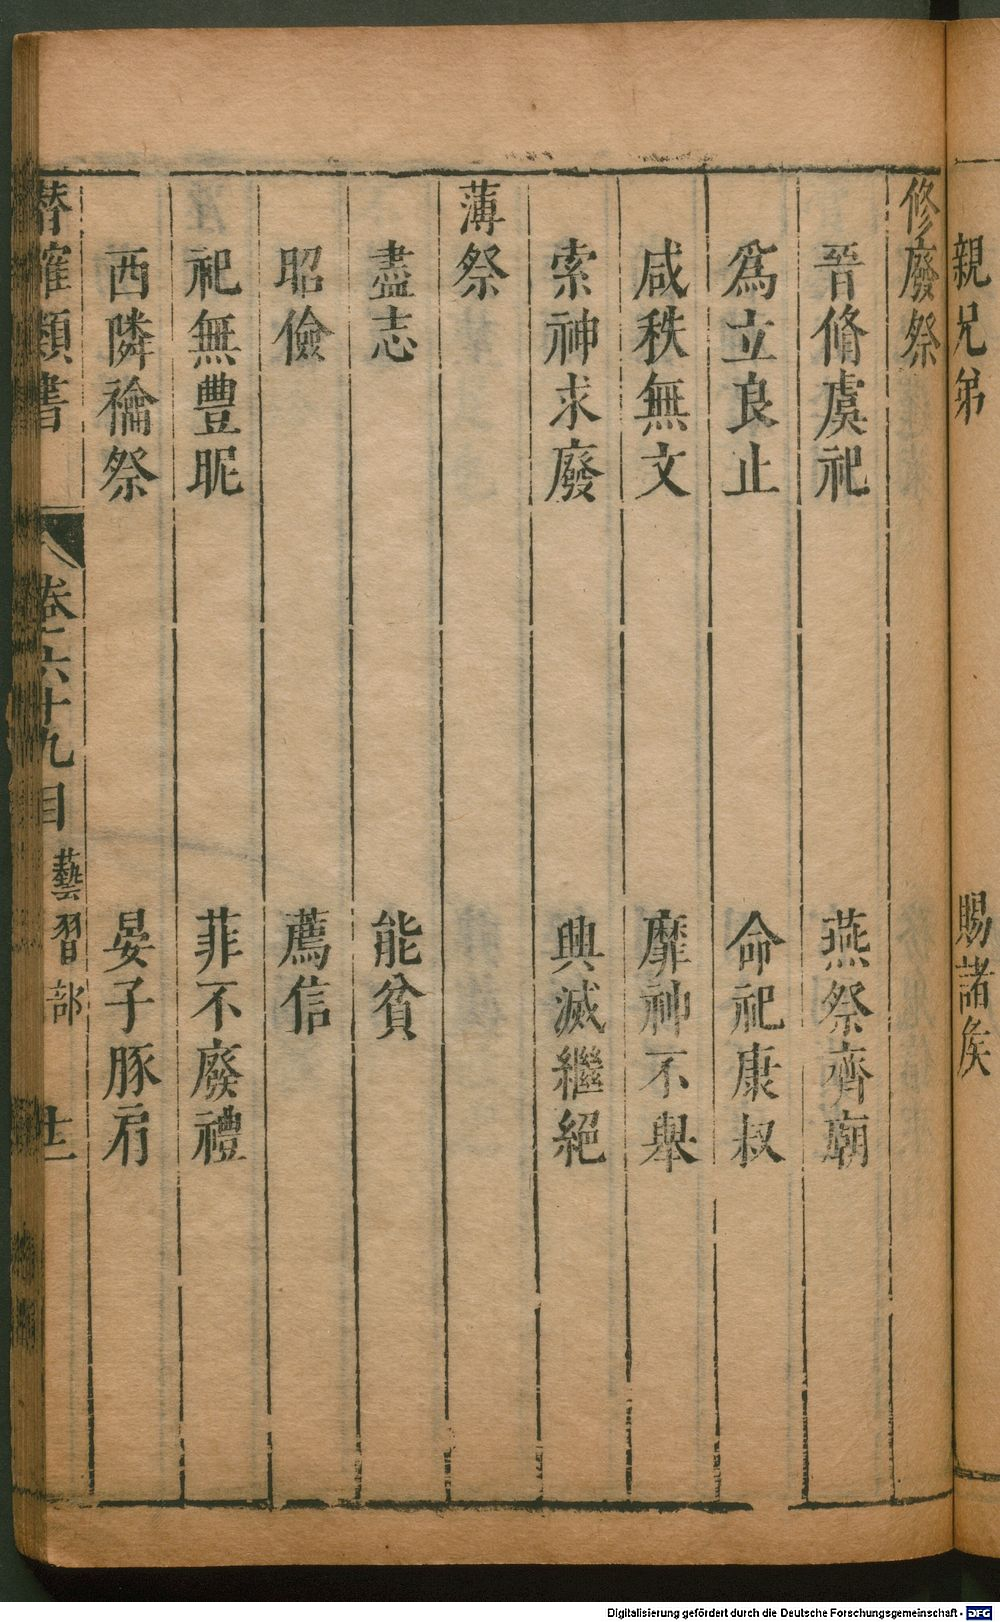 親兄弟　賜諸侯
修廢祭
晉脩虞祀　燕祭齊廟
爲立良止　命祀康叔
咸秩無文　靡神不舉
索神求廢　興滅繼絕
薄祭
盡志　能貧
昭儉　薦信
祀無豐昵　菲不廢禮
西隣禴祭　晏子豚肩
潛確類書　卷六十九目　藝習部　廿一
Digitalisierung gefördert durch die Deutsche Forschungsgemeinschaft - DFG